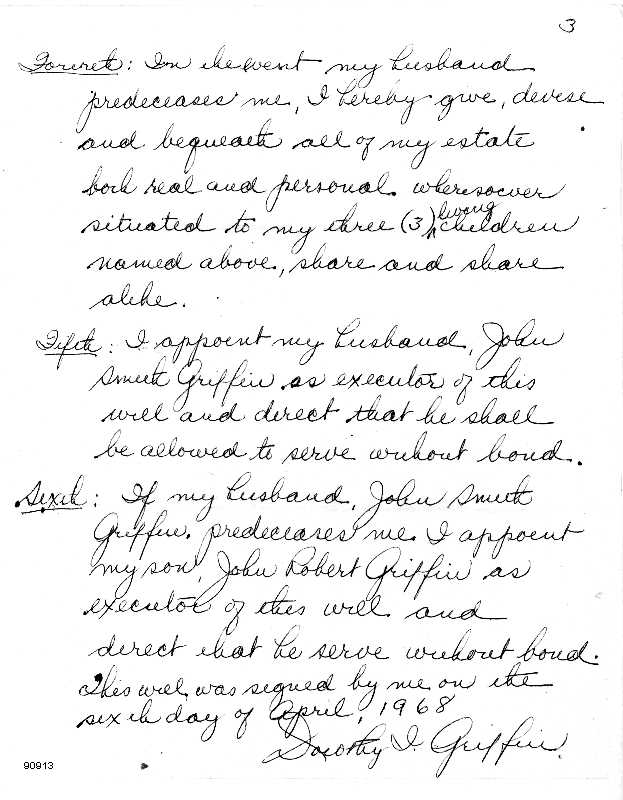 3
Foureth: In the event my husband
predeceases me, I hereby give, devise
and bequeath all of my estate
both real and personal wheresoever
situated to my three (3) living children
named above, share and share
alike.
Fifth: I appoint my husband, John
Smith Griffin as executor of this
will and direct that he shall
be allowed to serve without bond.
Sixth: If my husband, John Smith
Griffin, predeceases me I appoint
my son, John Robert Griffin as
executor of this will and
direct that he serve without bond.
This will was signed by me on the
sixth day of April, 1968
Dorothy I. Griffin.
90913